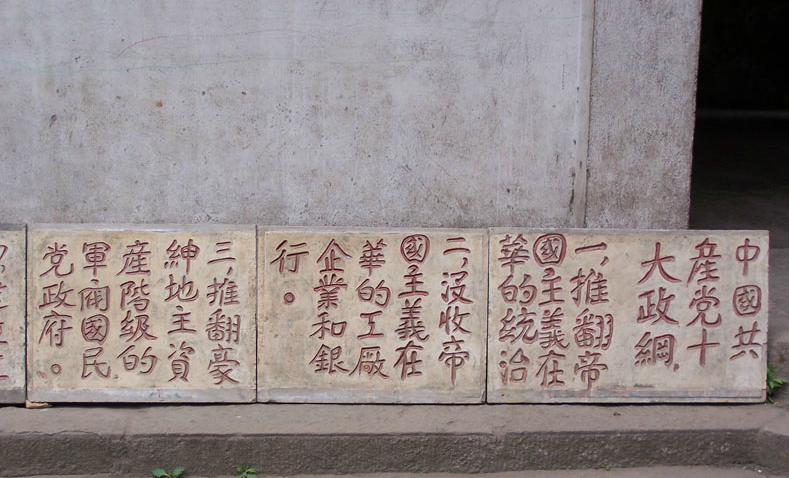 中國共
産党十
大政綱.
一,推翻帝
國主義在
華的統治
二,没收帝
國主義在
華的工厰
企業和銀
行。
三,推翻豪
紳地主資
産階級的
軍阀國民
党政府。